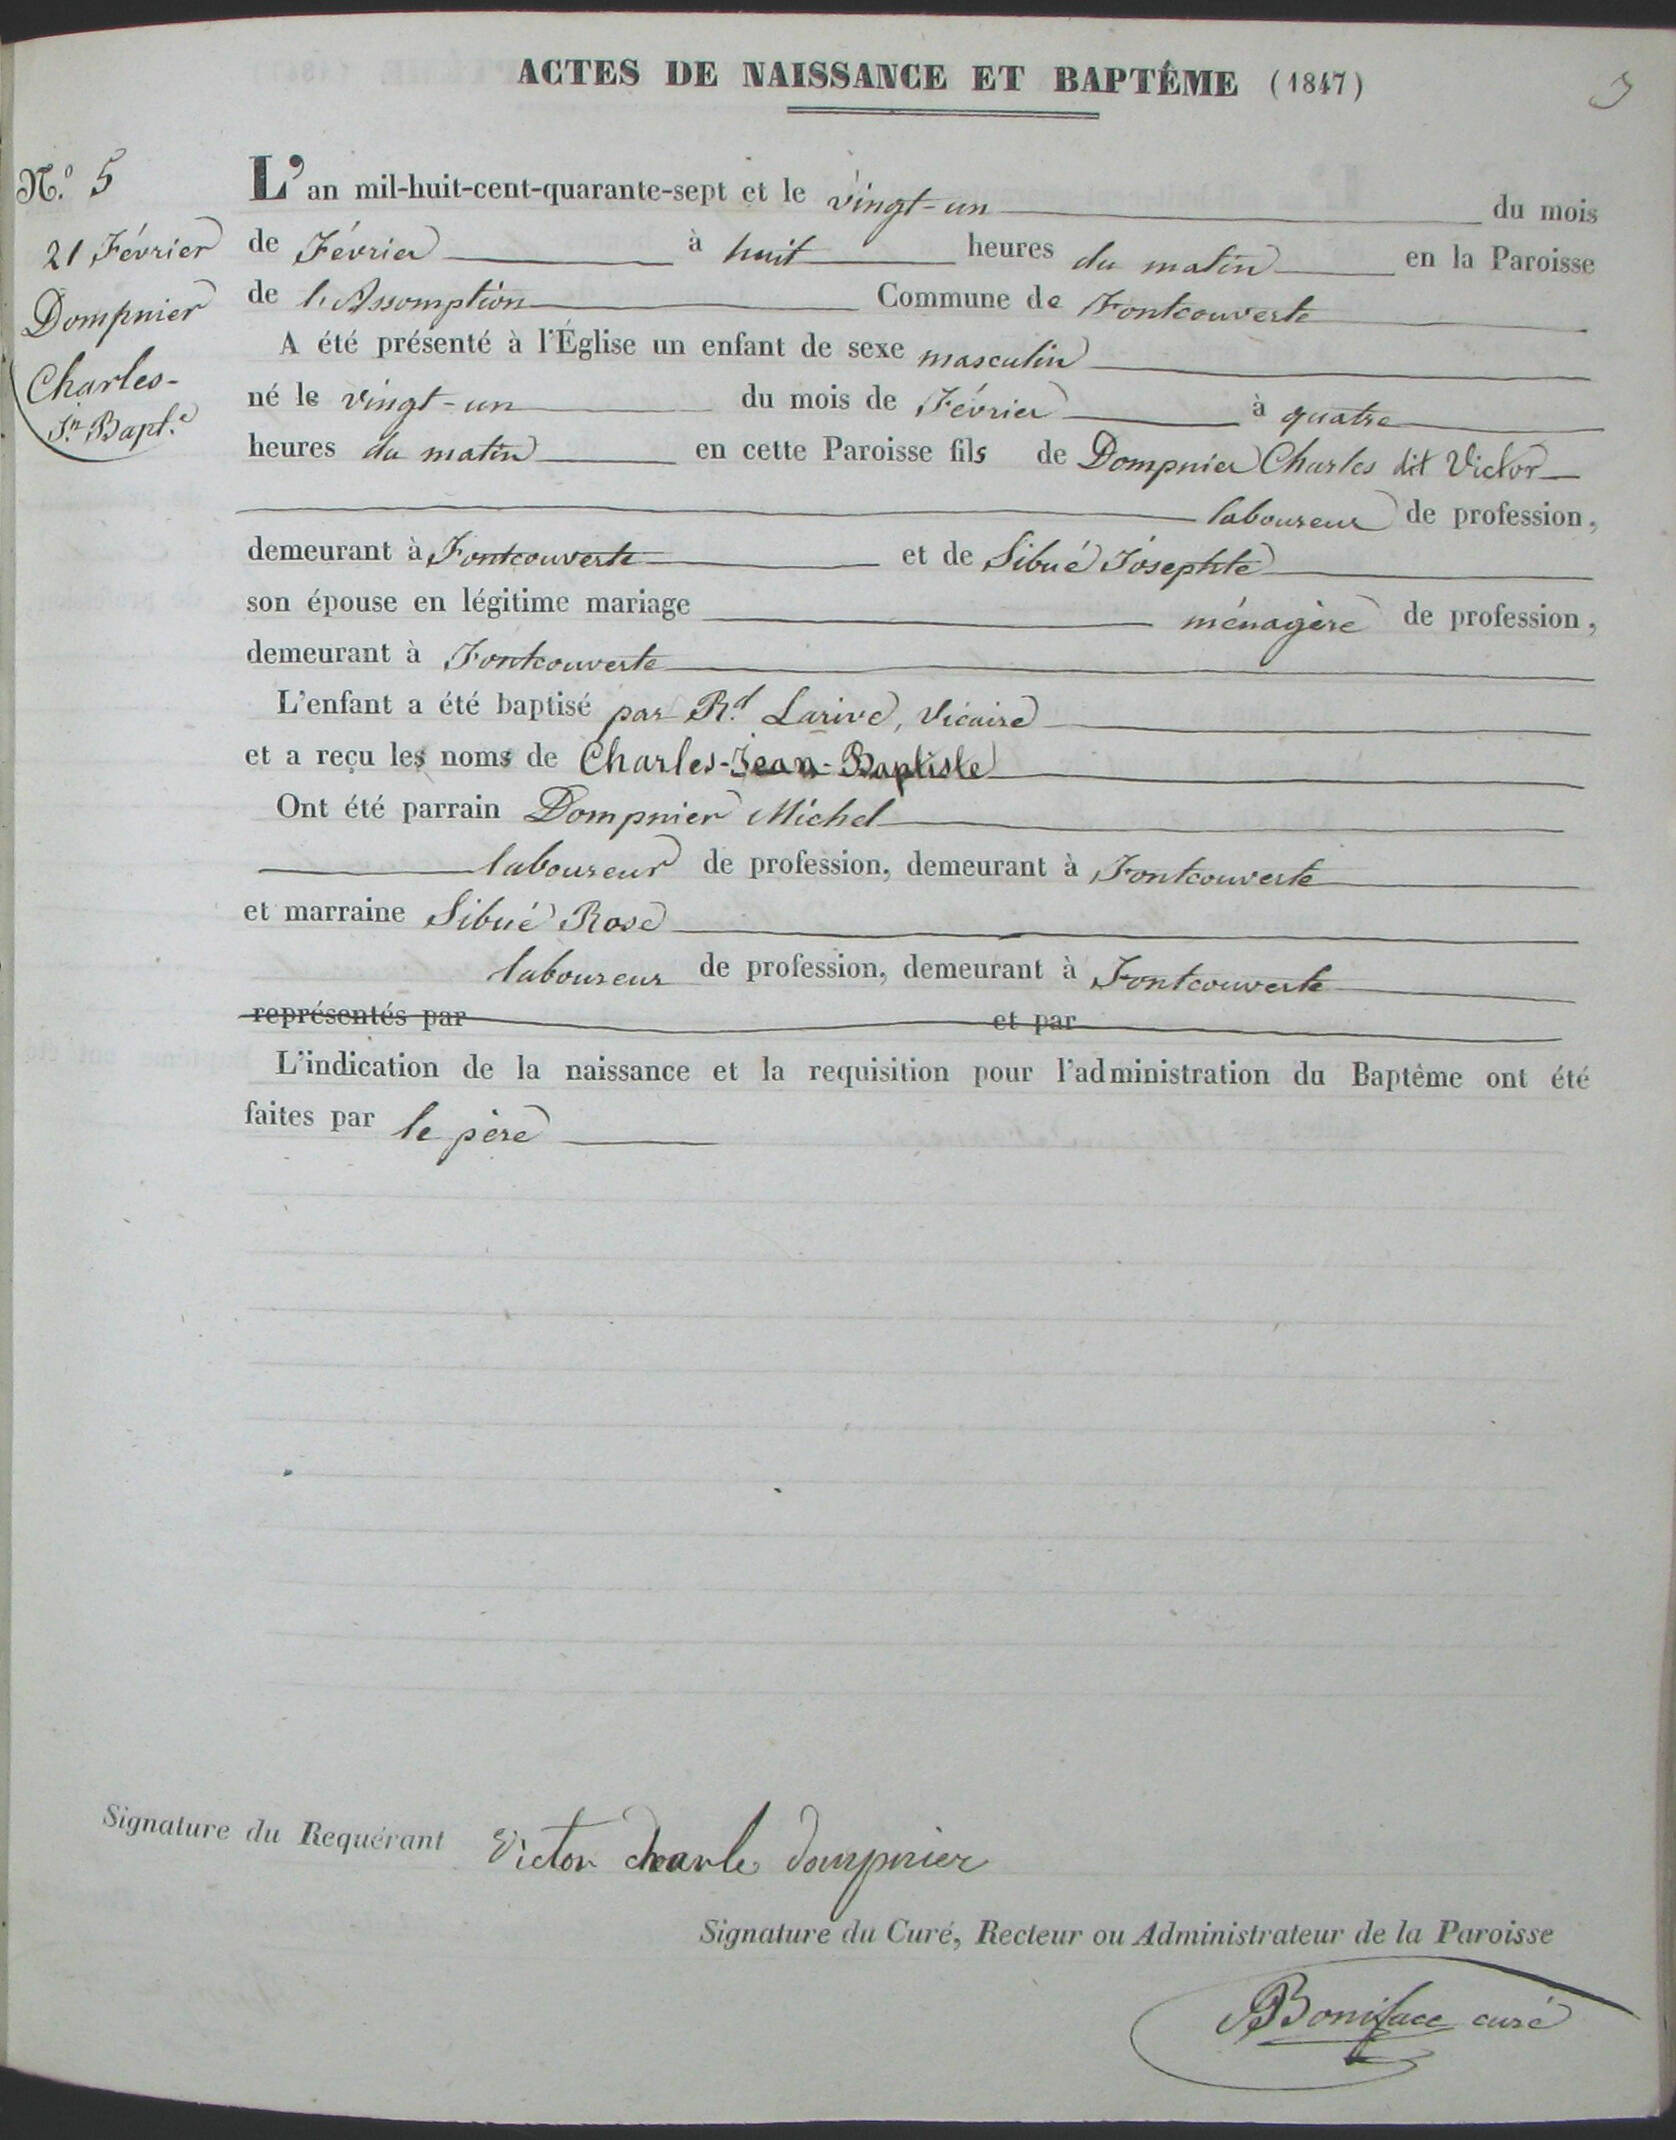 ACTES DE NAISSANCE ET BAPTÊME (1847)
3
N.º 5
21 Février
Dompnier
Charles-
Jn Bapt.e
L'an mil-huit-cent-quarante-sept et le vingt-un du mois
de Février à huit heures du matin en la Paroisse
de l'Assomption Commune de Fontcouverte
A été présenté à l'Église un enfant de sexe masculin
né le vingt-un du mois de Février à quatre
heures du matin en cette Paroisse fils de Dompnier Charles dit Victor
laboureur de profession,
demeurant à Fontcouverte et de Sibué Josephte
son épouse en légitime mariage ménagère de profession,
demeurant à Fontcouverte
L'enfant a été baptisé par Rd Larive, Vicaire
et a reçu les noms de Charles-Jean-Baptiste
Ont été parrain Dompnier Michel
laboureur de profession, demeurant à Fontcouverte
et marraine Sibué Rose
laboureur de profession, demeurant à Fontcouverte
représentés par et par
L'indication de la naissance et la requisition pour l'administration du Baptême ont été
faites par le père
Signature du Requérant Victor charle dompnier
Signature du Curé, Recteur ou Administrateur de la Paroisse
Boniface curé